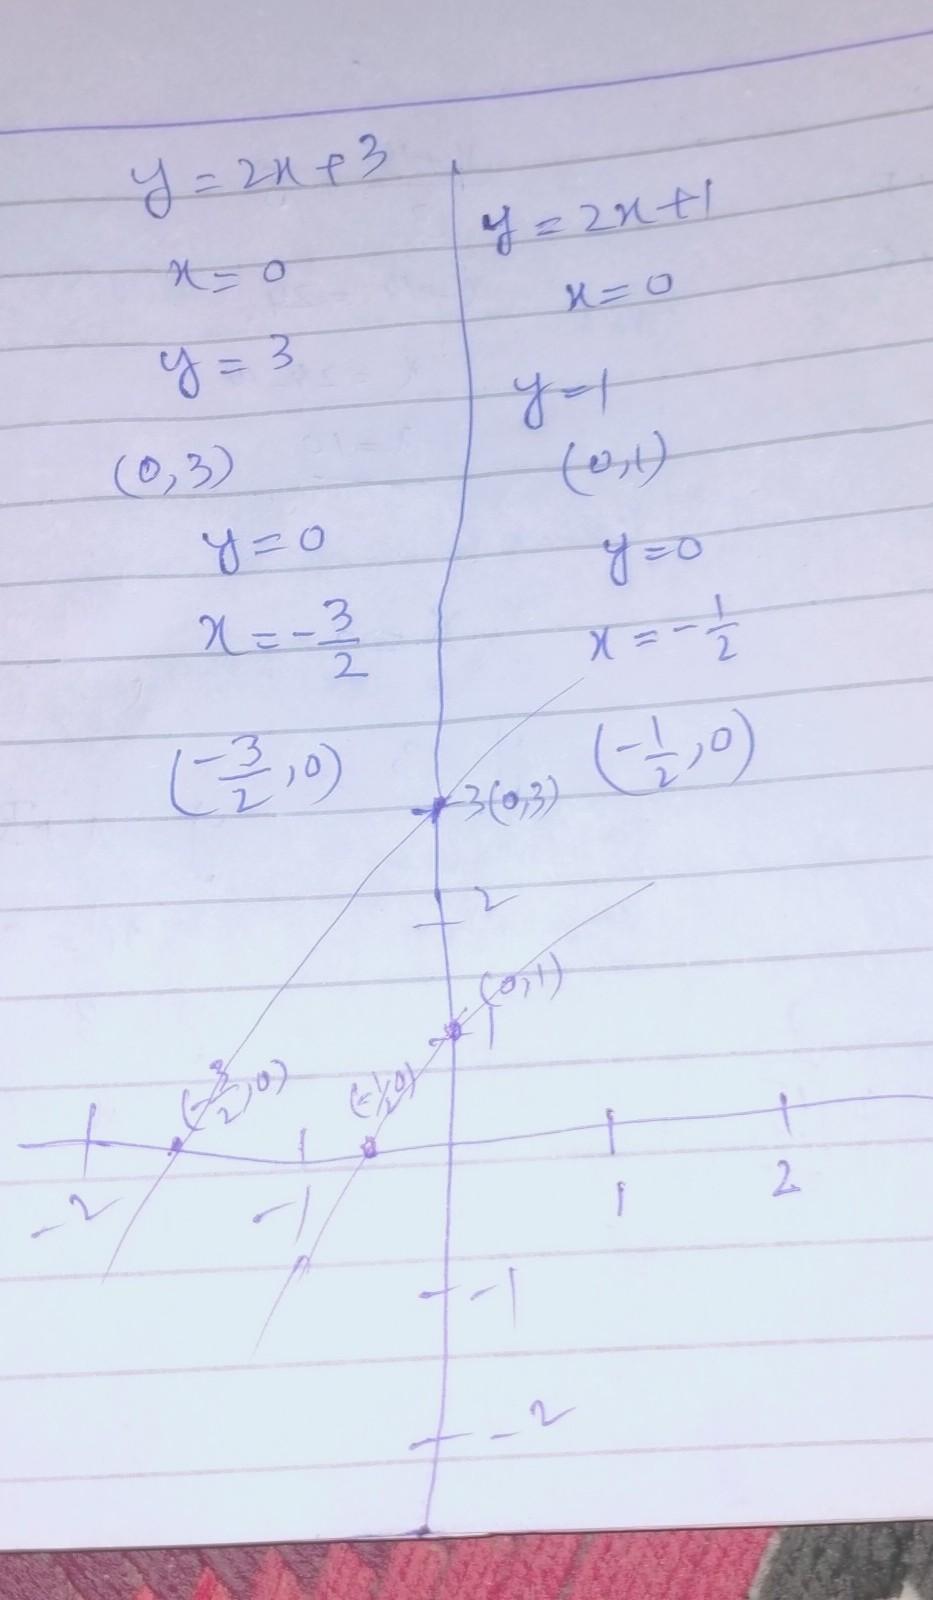 y = 2x + 3
x = 0
y = 3
(0, 3)
y = 0
x = -3/2
(-3/2, 0)
y = 2x + 1
x = 0
y = 1
(0, 1)
y = 0
x = -1/2
(-1/2, 0)
3 (0, 3)
2
(0, 1)
1
(-3/2, 0) (-1/2, 0)
-2 -1 1 2
-1
-2